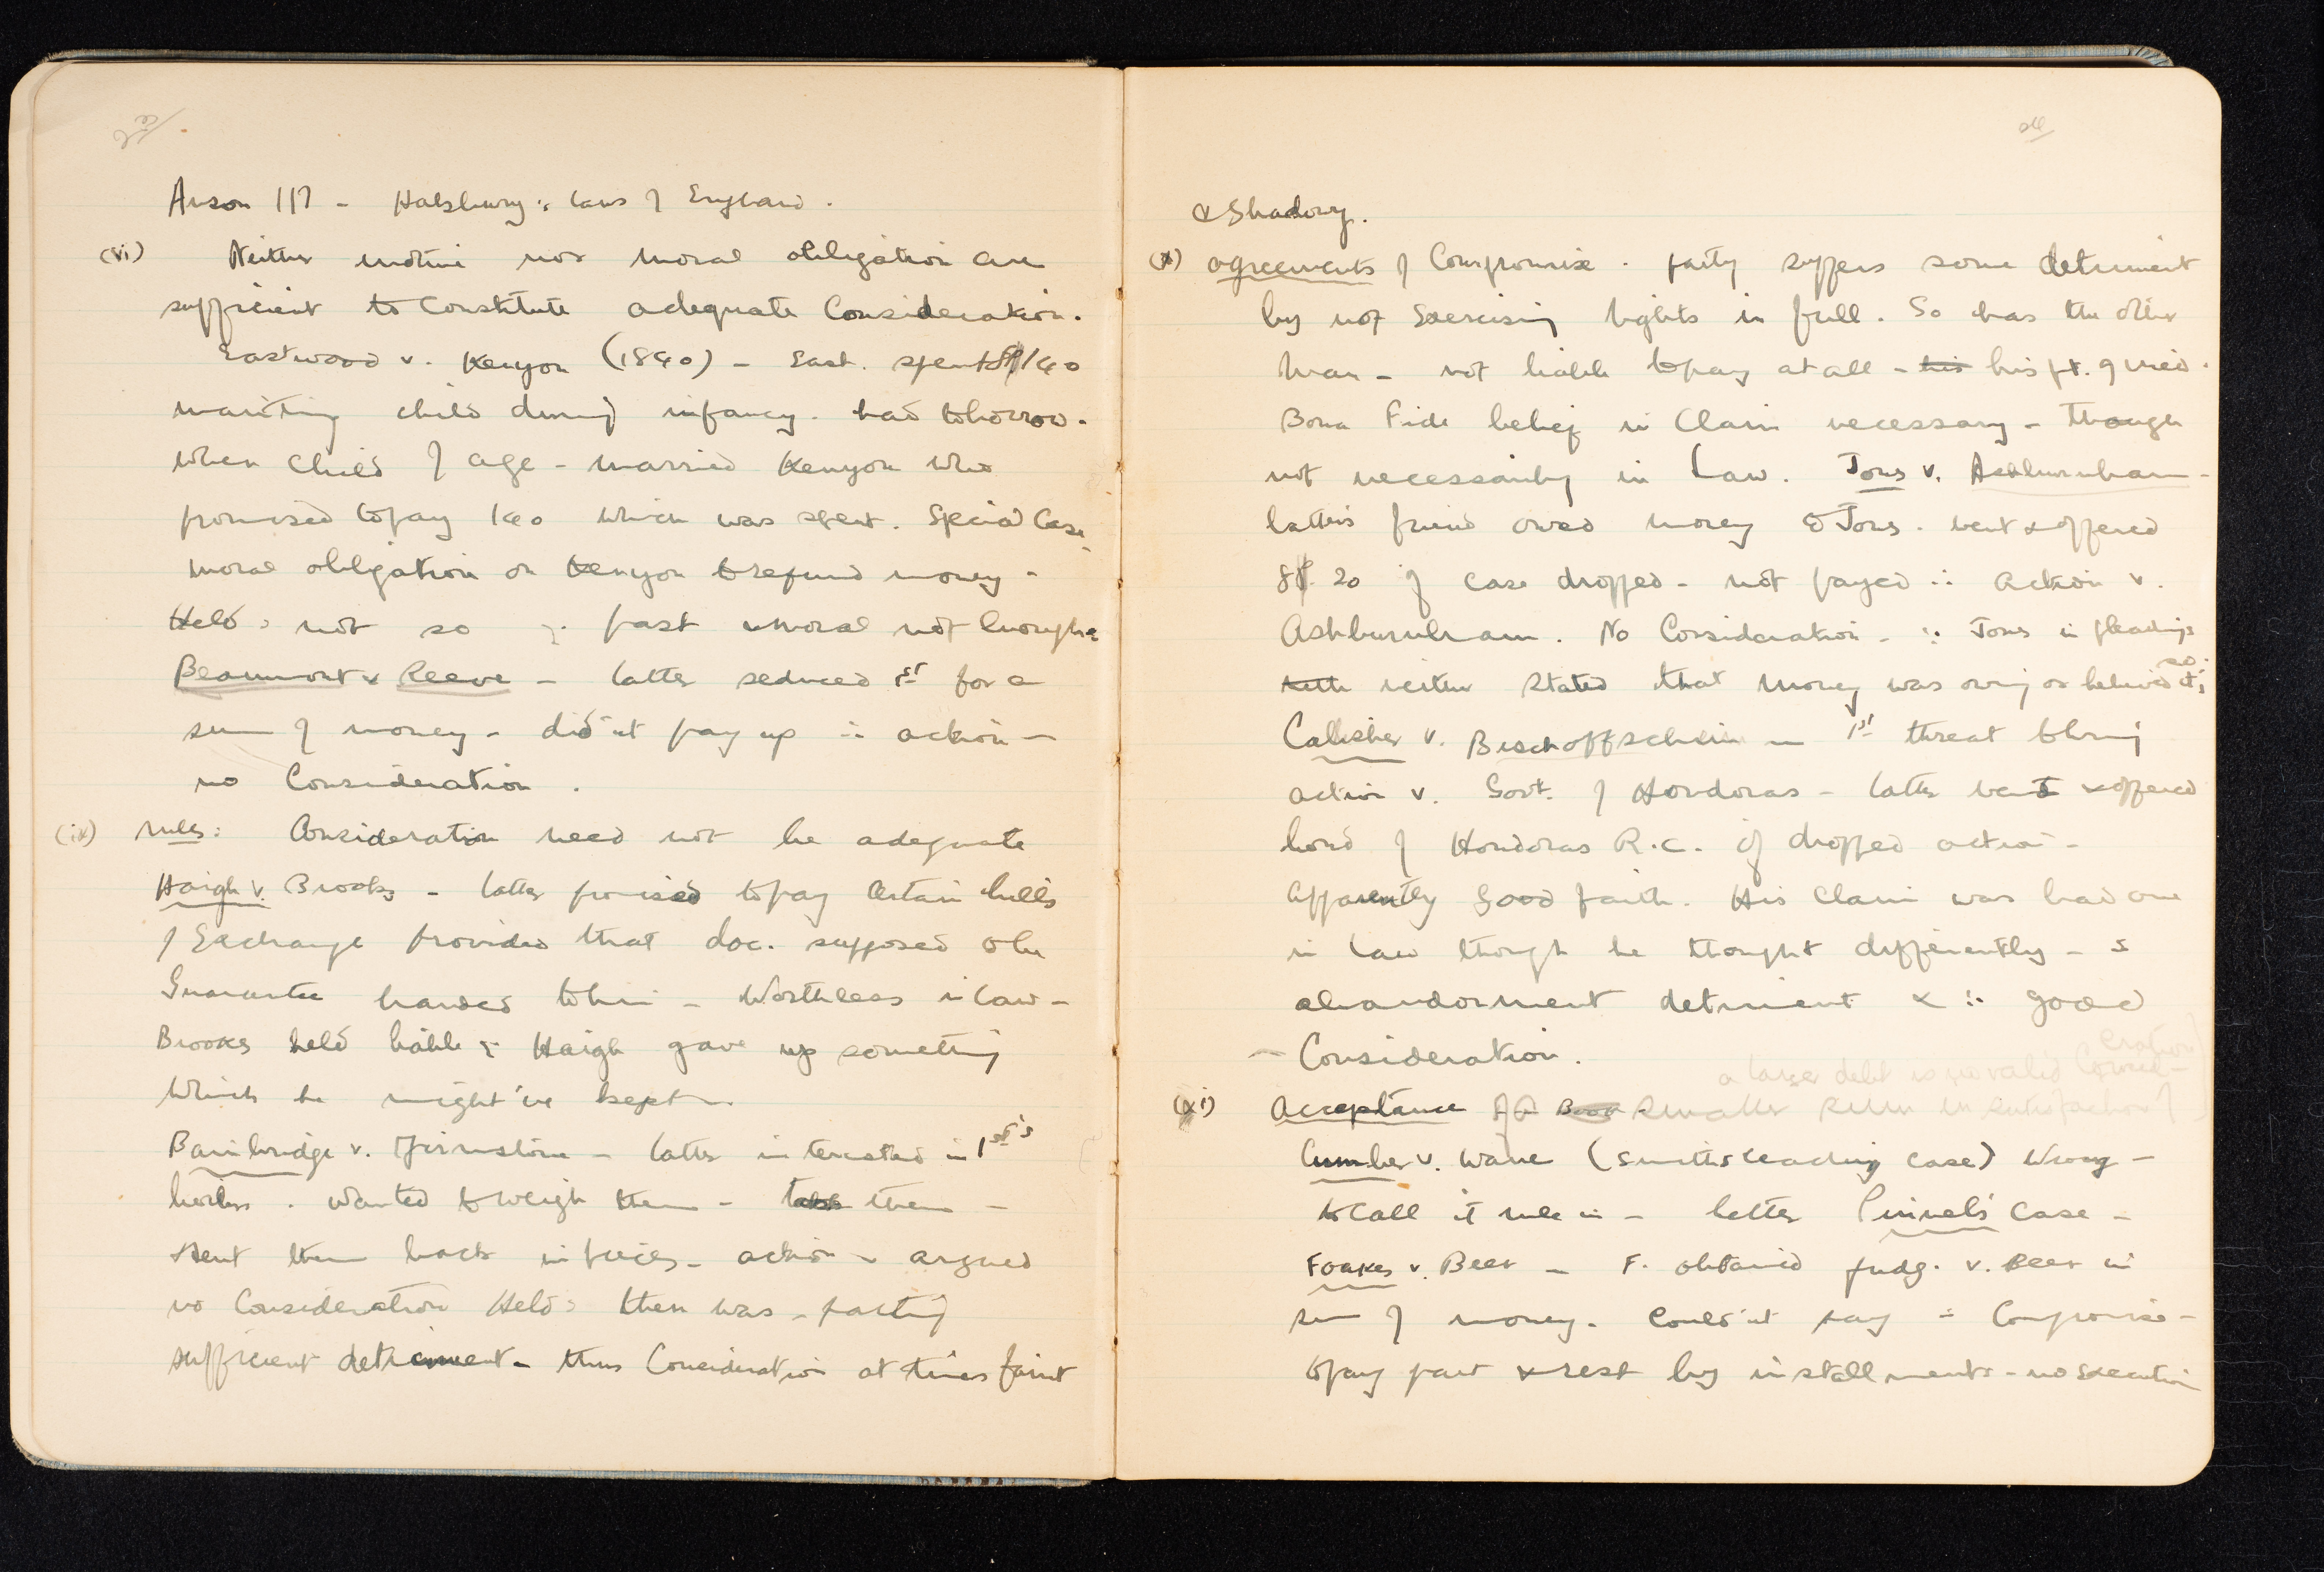 Anson 117 - Halsbury: laws of England.
(vi) Neither motive nor moral obligation are
sufficient to constitute adequate Consideration.
Eastwood v. Kenyon (1840) - East. spent 140
child during infancy. had to borrow.
when Child of age - married Kenyon who
promised to pay 140 which was spent. Special Case.
moral obligation on Kenyon to refund money -
Held: not so ∵ past & moral not enough.
Beaumont v Reeve - latter seduced 1st for a
sum of money - didn't pay up ∴ action -
no Consideration.
(ix) rules: Consideration need not be adequate
Haigh v. Brooks - latter promised to pay certain bills
of Exchange provided that doc. supposed to be
Guarantee handed to him - Worthless in law -
Brooks held liable ∵ Haigh gave up something
which he might've kept -
Bainbridge v. Firmstone - latter interested in 1st's
boilers. wanted to weigh them - took them -
sent them back in pieces - action - argued
no Consideration Held: there was - parting
sufficient detriment - thus Consideration at times faint
& Shadowy.
(x) agreements of Compromise. party suffers some detriment
by not Exercising rights in full. So has the other
man - not liable to pay at all - his his pt. of view.
Bona Fide belief in Claim necessary - though
not necessarily in Law. Jones v. Ashburnham -
latter's friend owed money to Jones. went & offered
20 if case dropped - not payed ∴ action v.
Ashburnham. No Consideration - ∵ Jones in pleadings
neither stated that money was owing or believed it so.
Callisher v. Bischoffschein - 1st threat to bring
action v. Govt. of Hondoras - latter went & offered
bond of Hondoras R.C. if dropped action -
Apparently Good faith. His Claim was bad one
in law though he thought differently -
abandonment detriment & ∴ good
- Consideration.
(xi) Acceptance of a smaller sum in satisfaction of
a larger debt is no valid Consideration
Cumber v. Wane (Smith's leading case) Wrong -
to call it rule in - better Pinnel's Case -
Foakes v. Beer - F. obtained judg. v. Beer in
sum of money. Couldn't pay ∴ Compromise -
to pay part & rest by installments - no execution